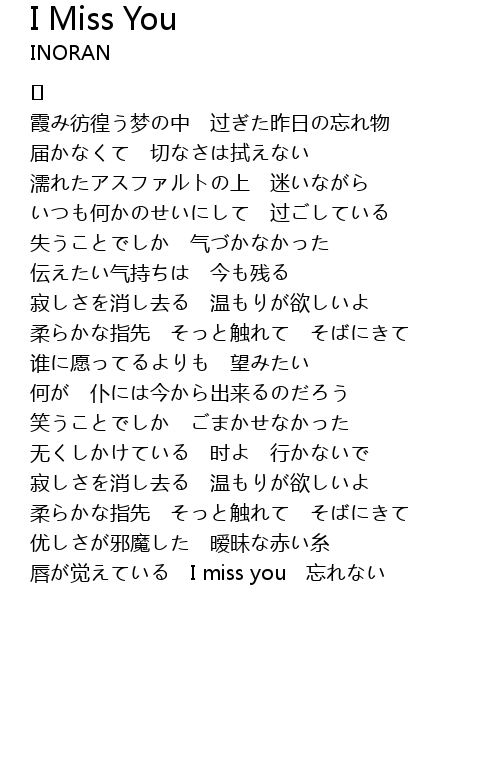 I Miss You
INORAN
霞み彷徨う梦の中　过ぎた昨日の忘れ物
届かなくて　切なさは拭えない
濡れたアスファルトの上　迷いながら
いつも何かのせいにして　过ごしている
失うことでしか　气づかなかった
伝えたい气持ちは　今も残る
寂しさを消し去る　温もりが欲しいよ
柔らかな指先　そっと触れて　そばにきて
谁に愿ってるよりも　望みたい
何が　仆には今から出来るのだろう
笑うことでしか　ごまかせなかった
无くしかけている　时よ　行かないで
寂しさを消し去る　温もりが欲しいよ
柔らかな指先　そっと触れて　そばにきて
优しさが邪魔した　暧昧な赤い糸
唇が觉えている　I miss you　忘れない